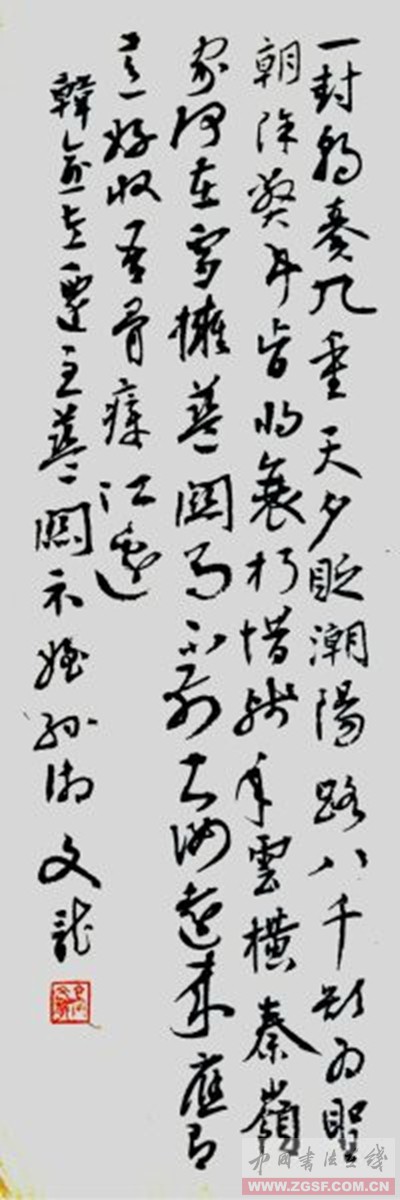 一封朝奏九重天夕貶潮陽路八千欲为聖
朝除弊事肯将衰朽惜残年雲橫秦嶺
家何在雪擁藍關马不前知汝遠来應有
意好收吾骨瘴江邊
韓愈左遷至藍關示姪孫湘 文龍
中国书法在线
WWW.ZGSF.COM.CN